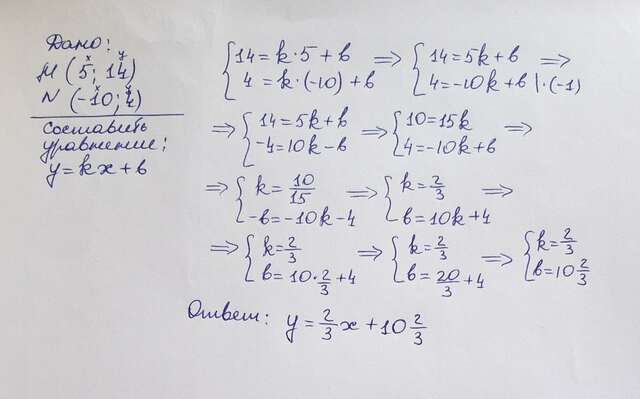 Дано:
M (5; 14)
x y
N (-10; 4)
x y
Составить
уравнение:
y=kx+b
{14=k·5+b
4=k·(-10)+b => {14=5k+b
4=-10k+b |·(-1) =>
=> {14=5k+b
-4=10k-b => {10=15k
4=-10k+b =>
=> {k=10/15
-b=-10k-4 => {k=2/3
b=10k+4 =>
=> {k=2/3
b=10·2/3+4 => {k=2/3
b=20/3+4 => {k=2/3
b=10 2/3
Ответ: y=2/3x+10 2/3